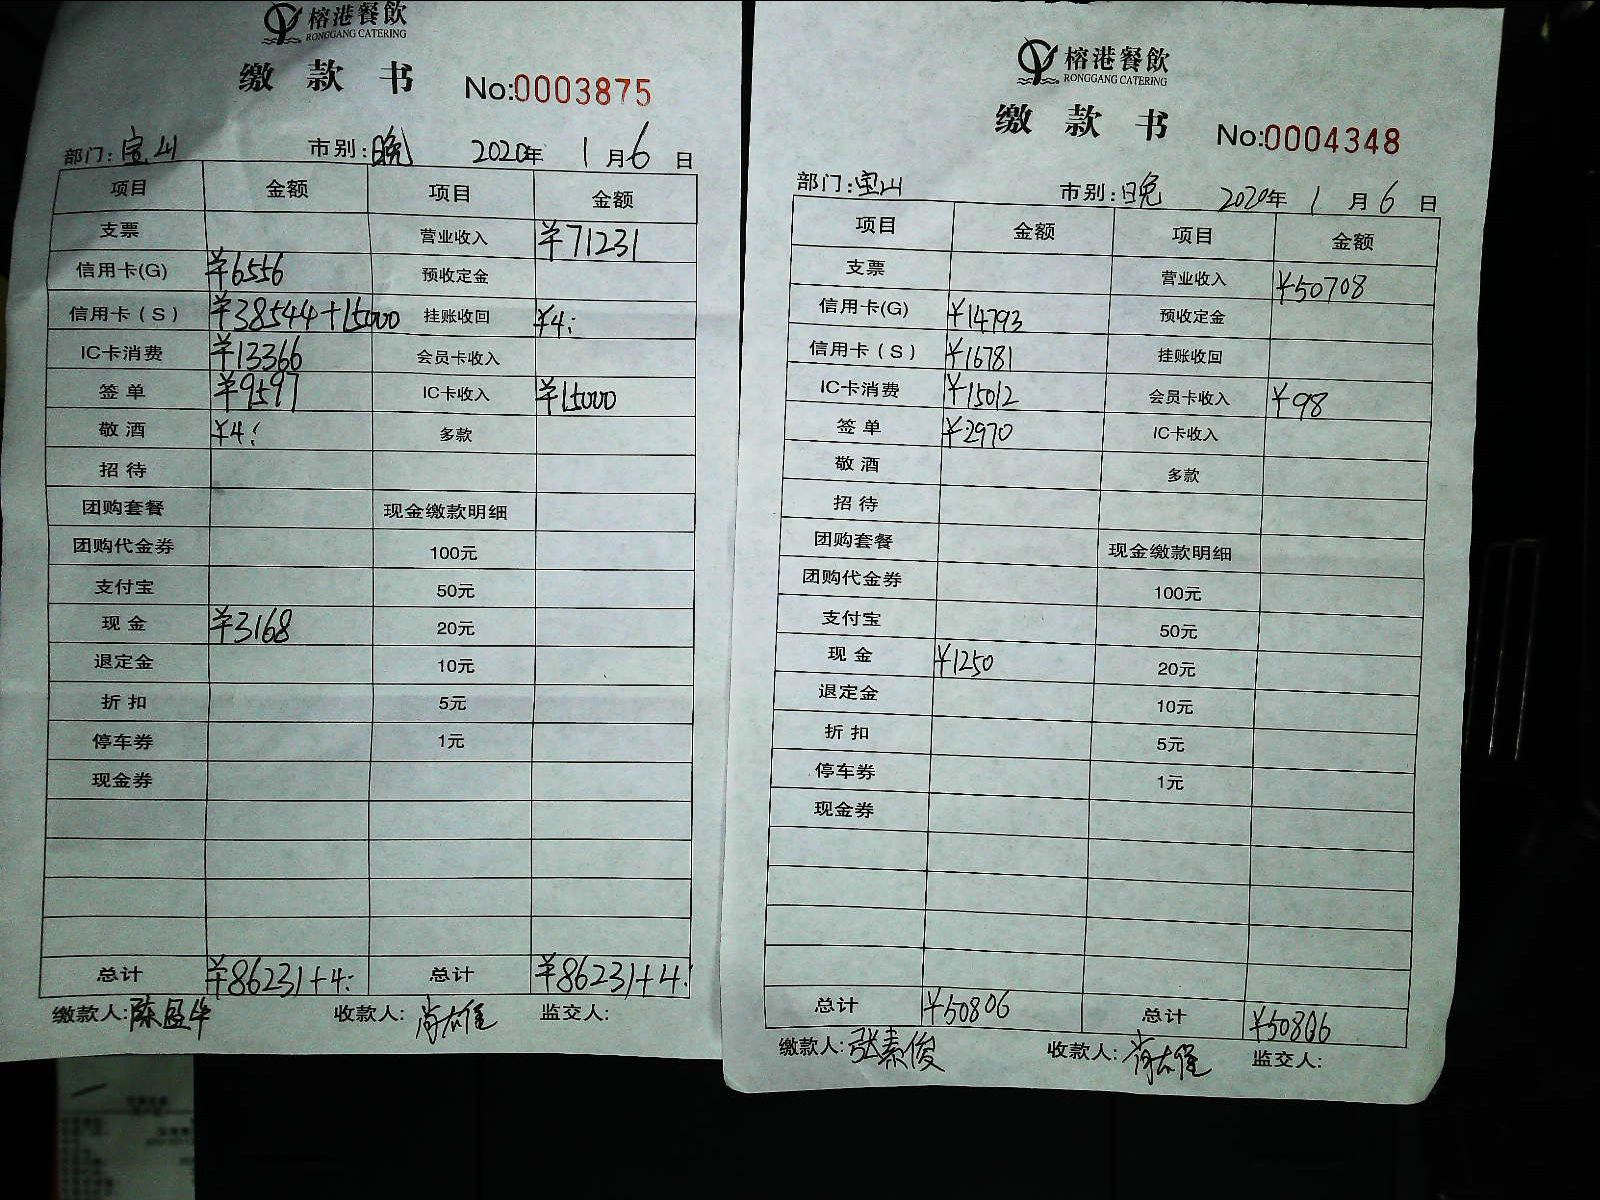 榕港餐飲
RONGGANG CATERING
缴款书 No:0003875
部门:宝山 市别:晚 2020年 1月6日
项目 金额 项目 金额
支票 营业收入 ¥71231
信用卡(G) ¥6556 预收定金
信用卡(S) ¥38544+15000 挂账收回 ¥4:
IC卡消费 ¥13366 会员卡收入
签单 ¥9597 IC卡收入 ¥15000
敬酒 ¥4: 多款
招待
团购套餐 现金缴款明细
团购代金券 100元
支付宝 50元
现金 ¥3168 20元
退定金 10元
折扣 5元
停车券 1元
现金券
总计 ¥86231+4: 总计 ¥86231+4:
缴款人: 收款人: 监交人:
榕港餐飲
RONGGANG CATERING
缴款书 No:0004348
部门:宝山 市别:晚 2020年 1月6日
项目 金额 项目 金额
支票 营业收入 ¥50708
信用卡(G) ¥14793 预收定金
信用卡(S) ¥16781 挂账收回
IC卡消费 ¥15012 会员卡收入 ¥98
签单 ¥2970 IC卡收入
敬酒 多款
招待
团购套餐 现金缴款明细
团购代金券 100元
支付宝 50元
现金 ¥1250 20元
退定金 10元
折扣 5元
停车券 1元
现金券
总计 ¥50806 总计 ¥50806
缴款人:张素俊 收款人: 监交人: